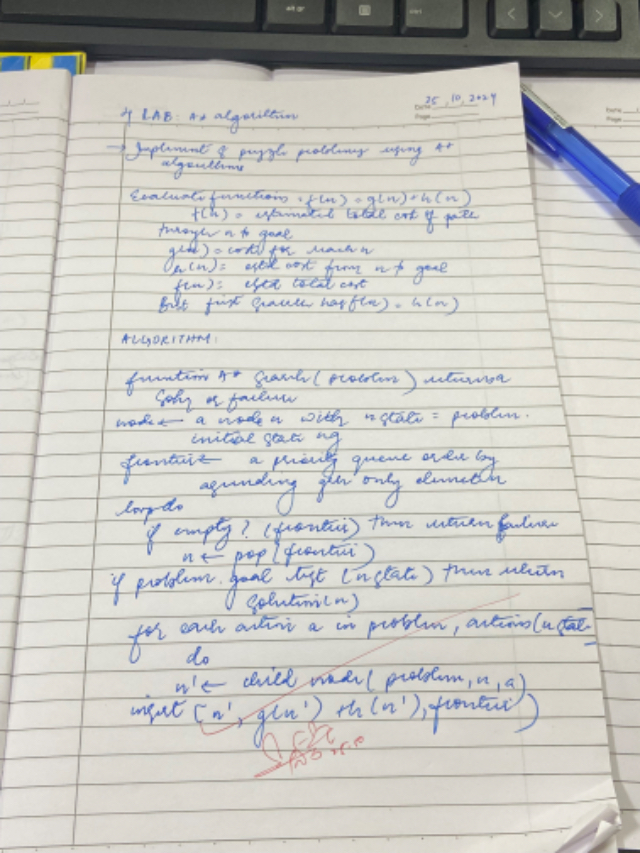 25, 10, 2024
Page
4 LAB: A* algorithm
→ Implement 8 puzzle problems using A*
algorithms
Evaluate functions, f(n) = g(n) + h(n)
f(n) = estimated total cost of path
through n to goal
g(n) = cost for reach n
h(n) = estd cost from n to goal
f(n) = estd total cost
Best first search has f(n) = h(n)
ALGORITHM:
function A* search (problem) returns a
soln or failure
node ← a node n with n state = problem.
initial state ng
frontier ← a priority queue order by
ascending g+h only element n
loop do
if empty? (frontier) then return failure
n ← pop (frontier)
if problem. goal test (n state) then return
solution(n)
for each action a in problem, actions (n state
do
n' ← child node (problem, n, a)
insert (n', g(n') + h(n'), frontier)